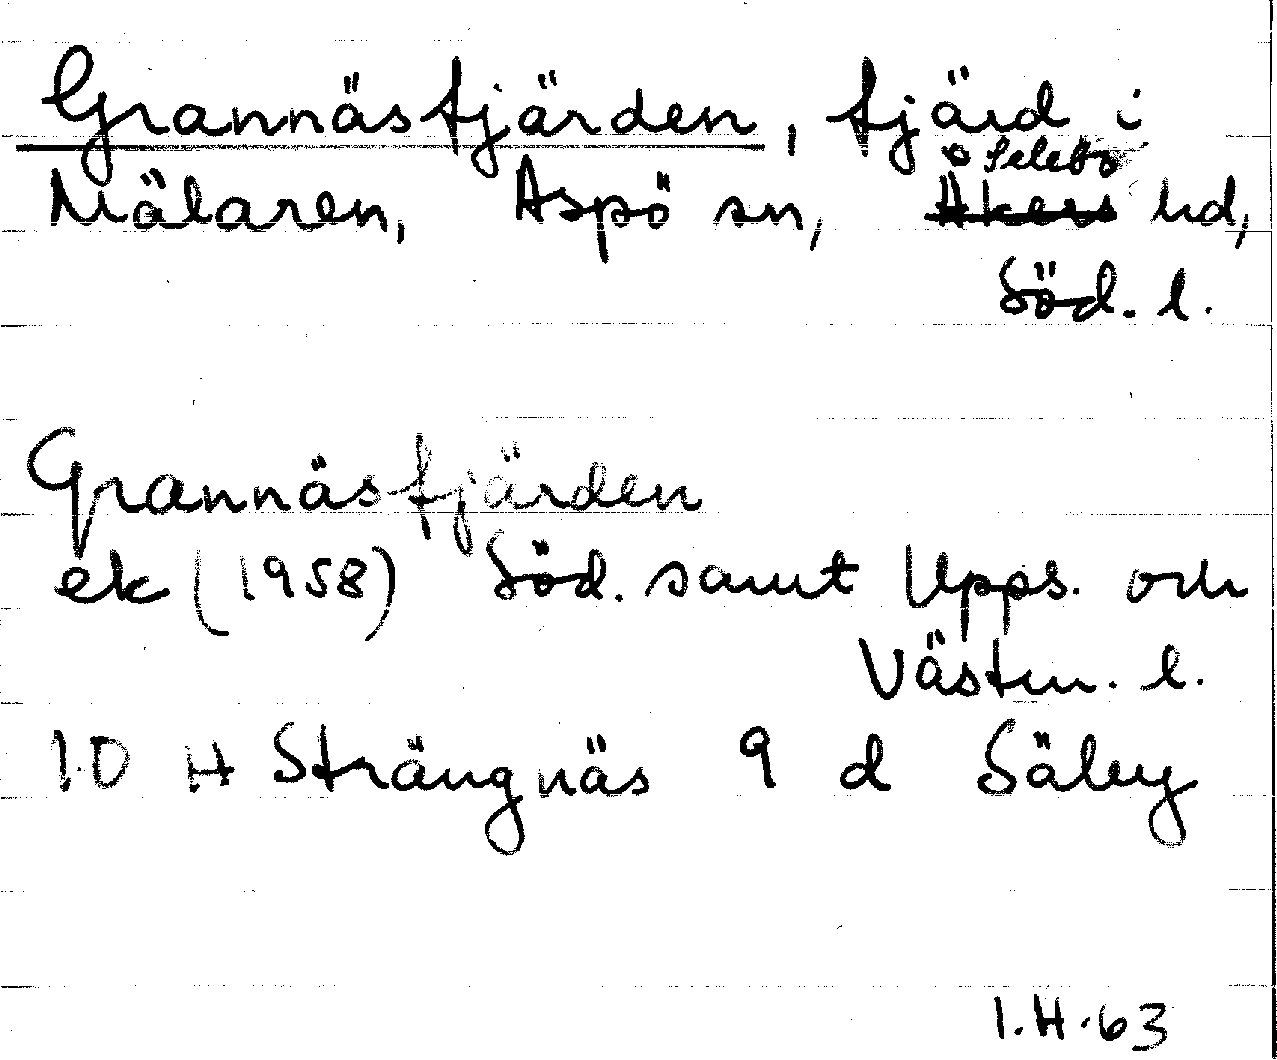 Grannäsfjärden, fjärd i
Selebo
Mälaren, Aspö sn, Åkers hd,
Söd. l.
Grannäsfjärden
ek (1958) Söd. samt Upps. och
Västm. l.
10 H Strängnäs 9 d Säby
I.H.63